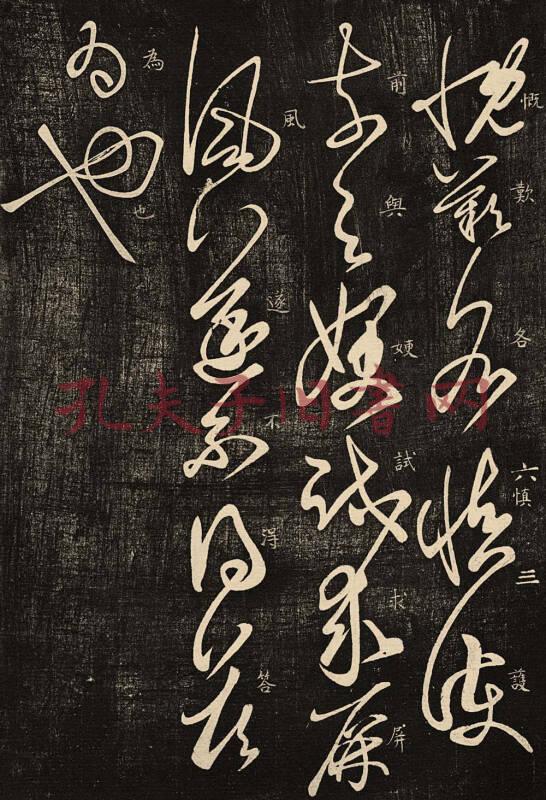 慨歎各慎護
前與婹試求屏
風遂不得答
為也
六
三
孔夫子旧书网